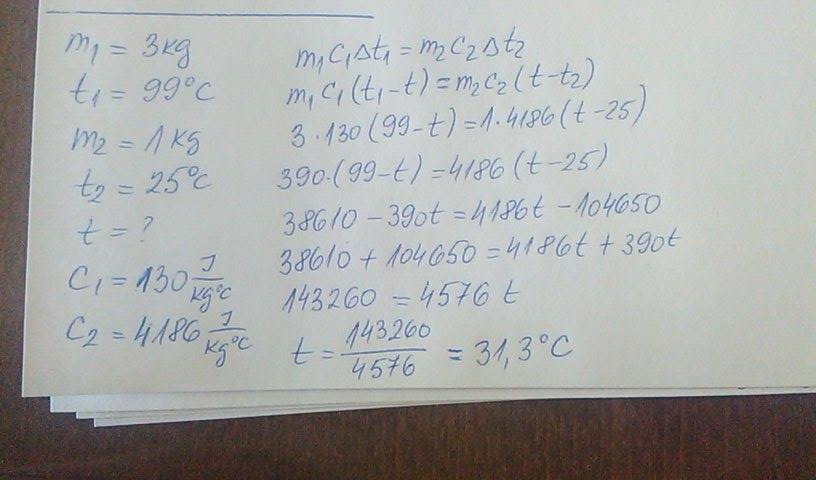 m₁ = 3kg
t₁ = 99°C
m₂ = 1kg
t₂ = 25°C
t = ?
C₁ = 130 J/kg°C
C₂ = 4186 J/kg°C
m₁c₁Δt₁ = m₂c₂Δt₂
m₁c₁(t₁-t) = m₂c₂(t-t₂)
3·130(99-t) = 1·4186(t-25)
390·(99-t) = 4186(t-25)
38610 - 390t = 4186t - 104650
38610 + 104650 = 4186t + 390t
143260 = 4576 t
t = 143260/4576 = 31,3°C